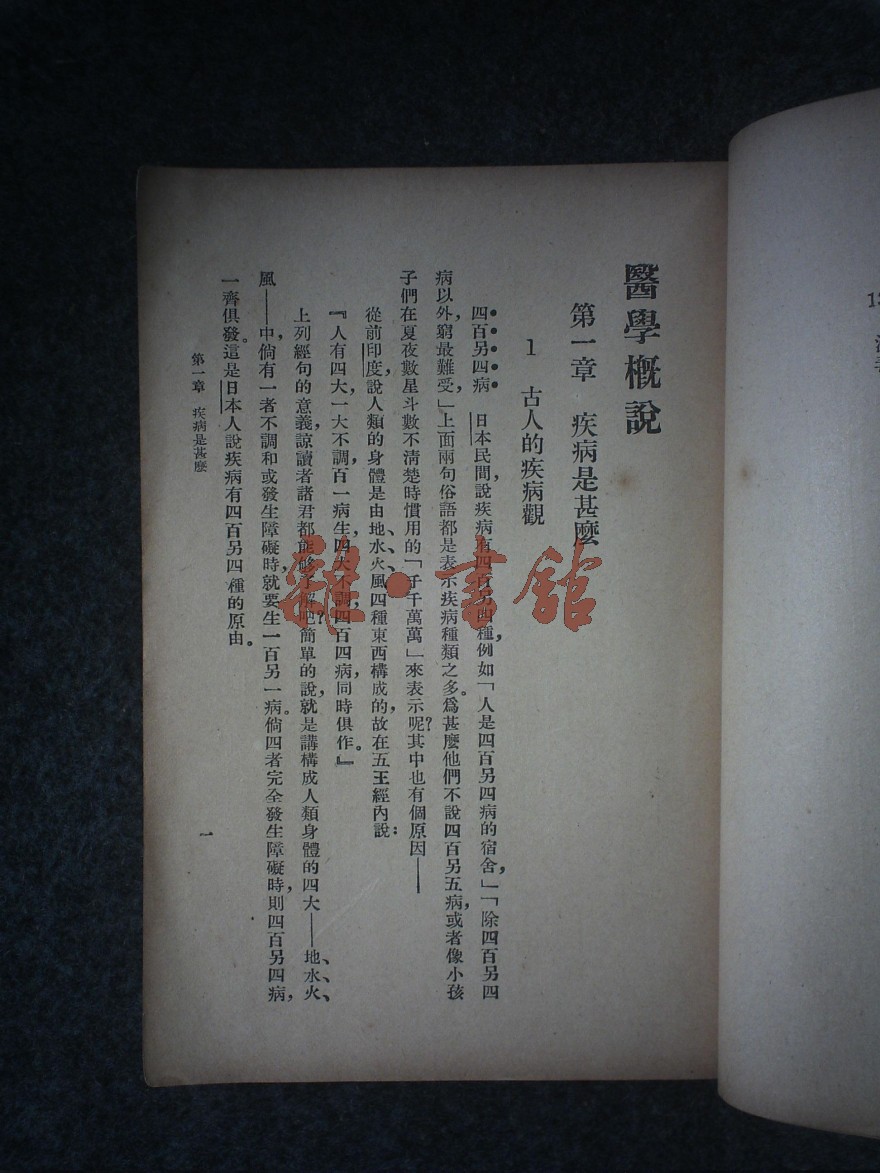 醫學概說
第一章　疾病是甚麼
1　古人的疾病觀
四百另四病　日本民間，說疾病有四百另四種，例如「人是四百另四病的宿舍，」「除四百另四
病以外，窮最難受，」上面兩句俗語都是表示疾病種類之多。爲甚麼他們不說四百另五病，或者像小孩
子們在夏夜數星斗數不清楚時慣用的「千千萬萬」來表示呢？其中也有個原因——
從前印度，說人類的身體是由地、水、火、風四種東西構成的，故在五王經內說：
『人有四大，一大不調，百一病生，四大不調，四百四病，同時俱作。』
上列經句的意義，諒讀者諸君都能够了解吧？簡單的說，就是講構成人類身體的四大——地、水、火、
風——中，倘有一者不調和或發生障礙時，就要生一百另一病。倘四者完全發生障礙時，則四百另四病，
一齊俱發。這是日本人說疾病有四百另四種的原由。
第一章　疾病是甚麼
一
雜·書館
13